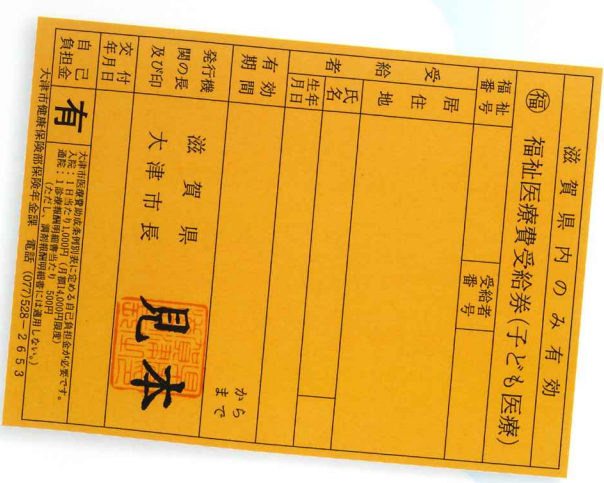 滋賀県内のみ有効
福 福祉医療費受給券(子ども医療)
福祉番号
受給者番号
受給者
居住地
氏名
生年月日
有効期間
から
まで
発行機関の長及び印
滋賀県
大津市長
見本
交付年月日
自己負担金
有
大津市医療費助成条例別表に定める自己負担金が必要です。
入院:1日当たり1,000円(月額14,000円限度)
通院:1診療報酬明細書当たり 500円
(ただし、調剤報酬明細書には適用しない。)
大津市健康保険部保険年金課 電話(077)528-2653